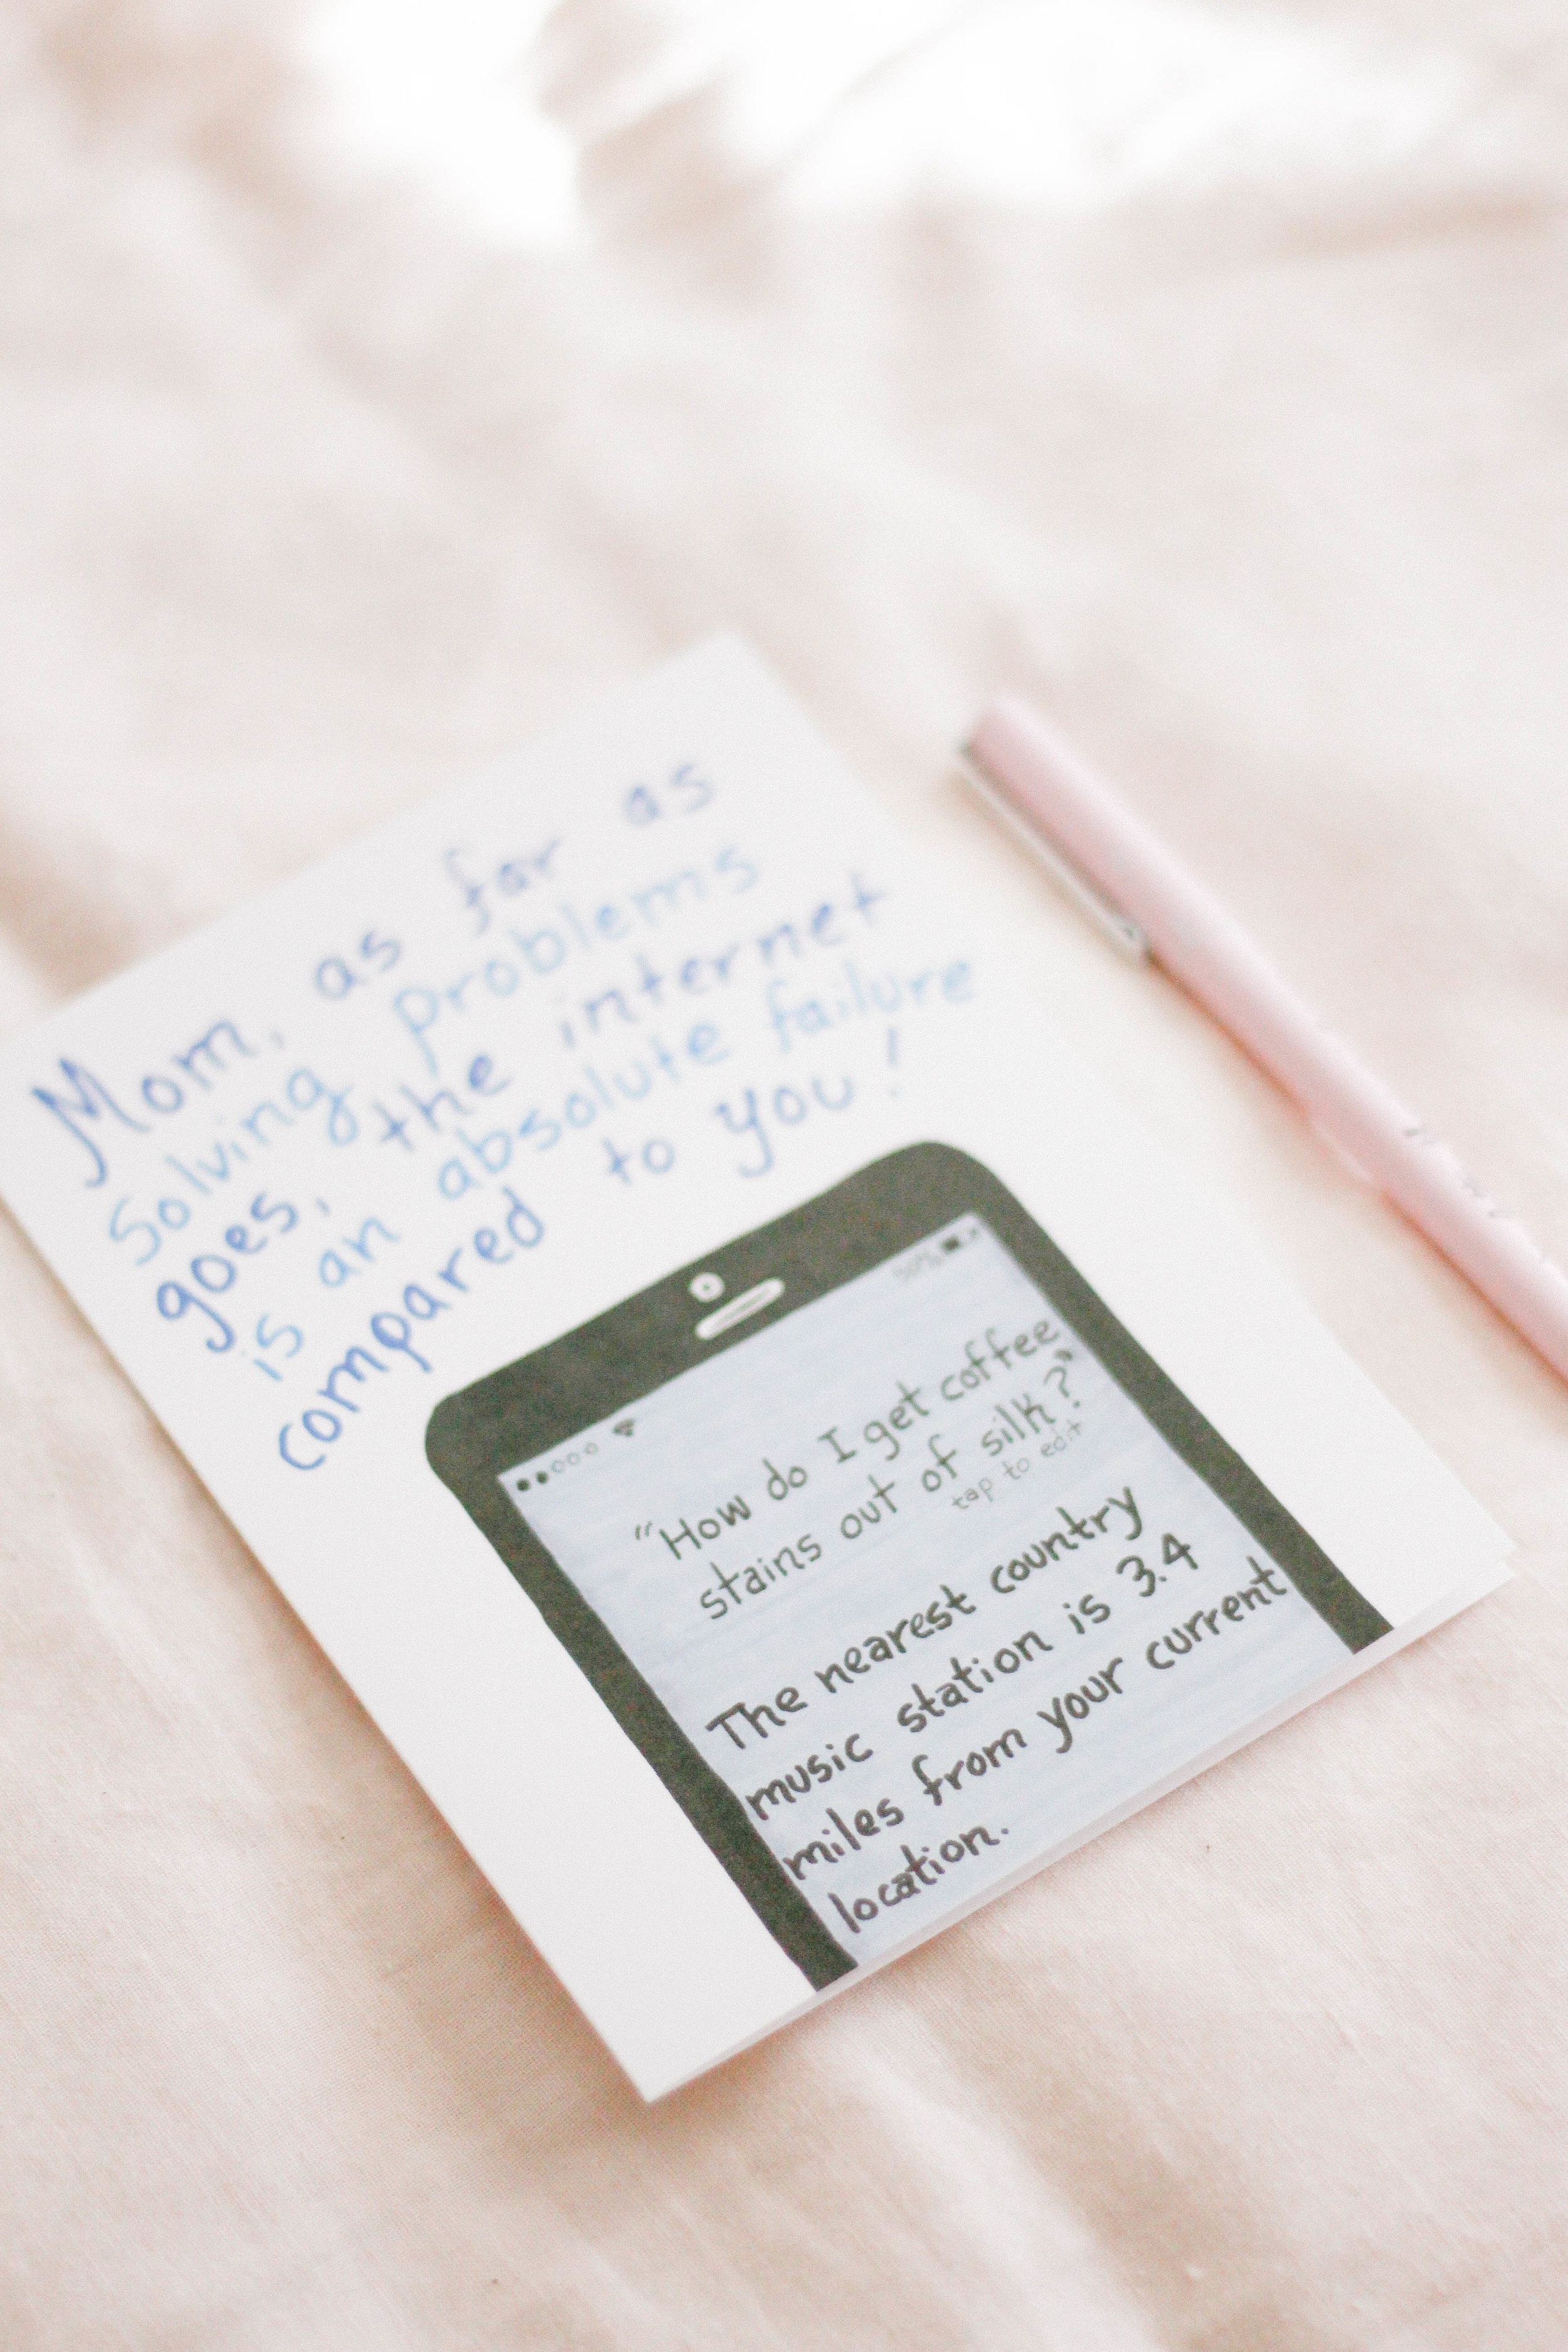 Mom, as far as
Solving problems
goes, the internet
is an absolute failure
compared to you!
50%
"How do I get coffee
stains out of silk?"
tap to edit
The nearest country
music station is 3.4
miles from your current
location.